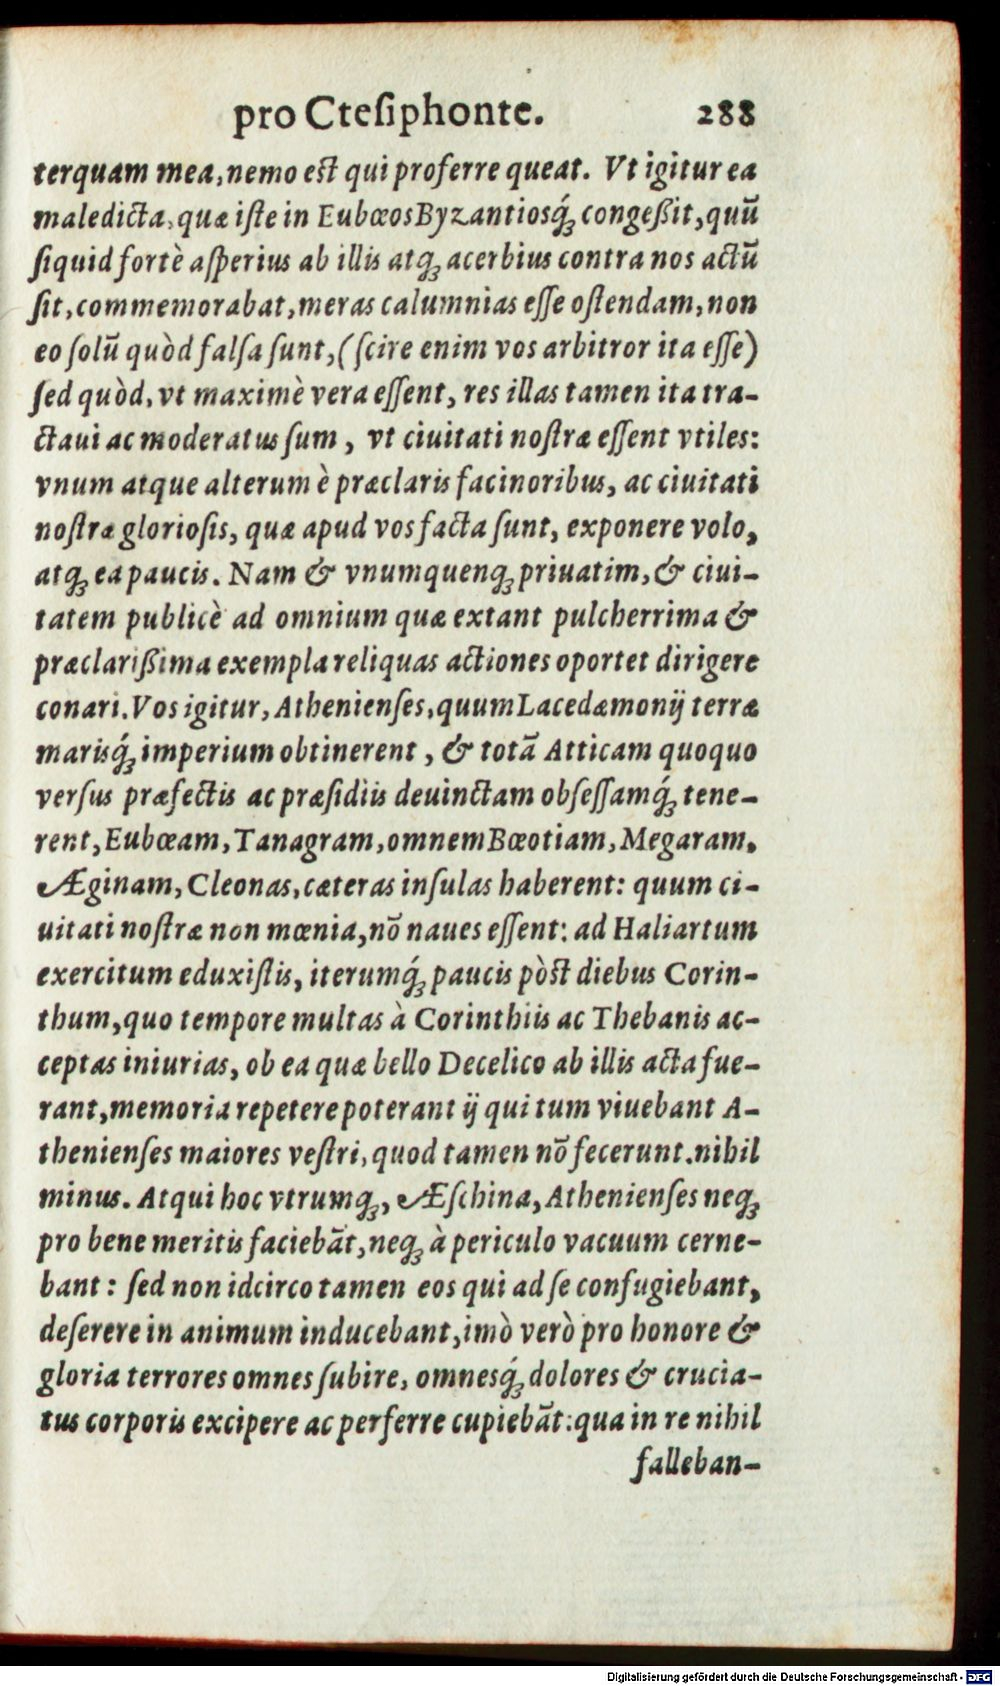 pro Cteſiphonte. 288
terquam mea, nemo eſt qui proferre queat. Vt igitur ea
maledicta, quæ iſte in Eubœos Byzantiosq́ꝫ congeßit, quū
ſiquid fortè aſperius ab illis atqꝫ acerbius contra nos actū
ſit, commemorabat, meras calumnias eſſe oſtendam, non
eo ſolū quòd falſa ſunt, (ſcire enim vos arbitror ita eſſe)
ſed quòd, vt maximè vera eſſent, res illas tamen ita tra-
ctaui ac moderatus ſum, vt ciuitati noſtræ eſſent vtiles:
vnum atque alterum è præclaris facinoribus, ac ciuitati
noſtræ glorioſis, quæ apud vos facta ſunt, exponere volo,
atqꝫ ea paucis. Nam & vnumquenqꝫ priuatim, & ciui-
tatem publicè ad omnium quæ extant pulcherrima &
præclarißima exempla reliquas actiones oportet dirigere
conari. Vos igitur, Athenienſes, quum Lacedæmonij terræ
marisq́ꝫ imperium obtinerent, & totā Atticam quoquo
verſus præfectis ac præſidiis deuinctam obſeſſamq́ꝫ tene-
rent, Eubœam, Tanagram, omnem Bœotiam, Megaram,
Æginam, Cleonas, cæteras inſulas haberent: quum ci-
uitati noſtræ non mœnia, nō naues eſſent: ad Haliartum
exercitum eduxiſtis, iterumq́ꝫ paucis pòſt diebus Corin-
thum, quo tempore multas à Corinthiis ac Thebanis ac-
ceptas iniurias, ob ea quæ bello Decelico ab illis acta fue-
rant, memoria repetere poterant ij qui tum viuebant A-
thenienſes maiores veſtri, quod tamen nō fecerunt. nihil
minus. Atqui hoc vtrumqꝫ, Æſchina, Athenienſes neqꝫ
pro bene meritis faciebāt, neqꝫ à periculo vacuum cerne-
bant: ſed non idcirco tamen eos qui ad ſe confugiebant,
deſerere in animum inducebant, imò verò pro honore &
gloria terrores omnes ſubire, omnesq́ꝫ dolores & crucia-
tus corporis excipere ac perferre cupiebāt: qua in re nihil
falleban-
Digitalisierung gefördert durch die Deutsche Forschungsgemeinschaft - DFG